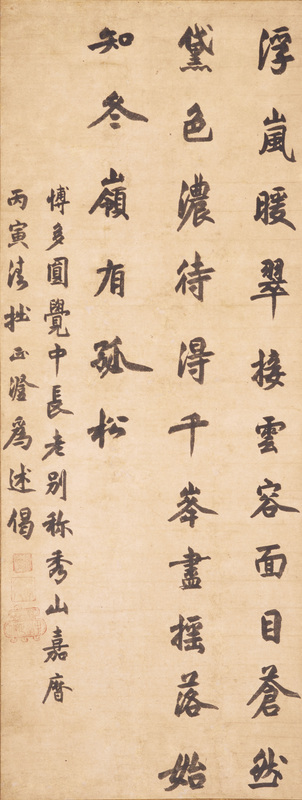 浮嵐暖翠接雲容面目蒼然
黛色濃待得千峯盡摇落始
知冬嶺有孤松
博多圓覺中長老別称秀山嘉暦
丙寅清拙正澄爲述偈